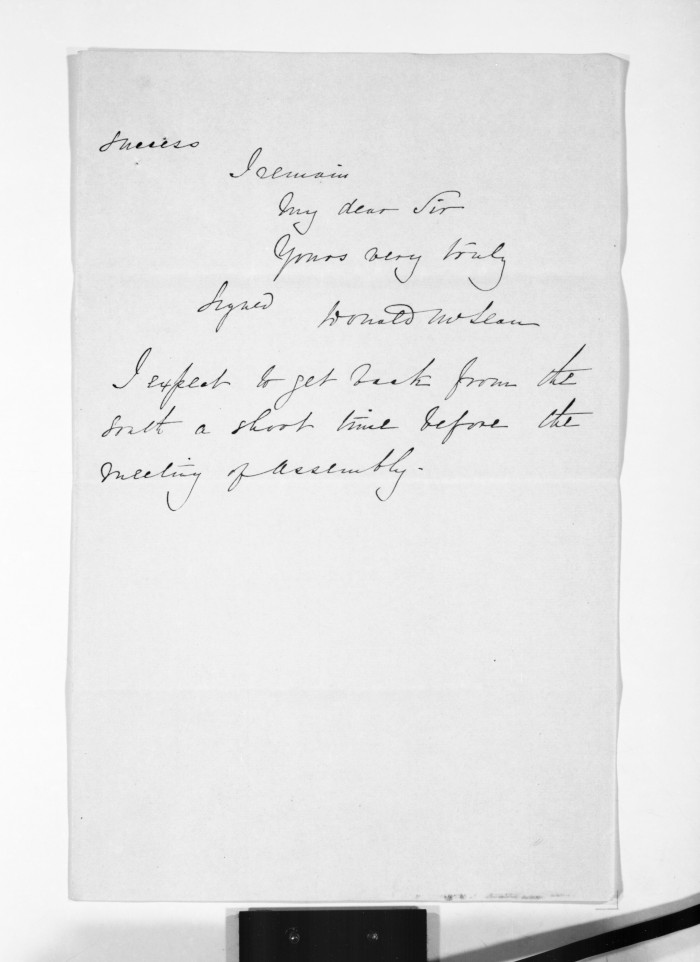 success
I remain
My dear Sir
Yours very truly
Signed Donald McLean
I expect to get back from the
South a short time before the
meeting of Assembly.